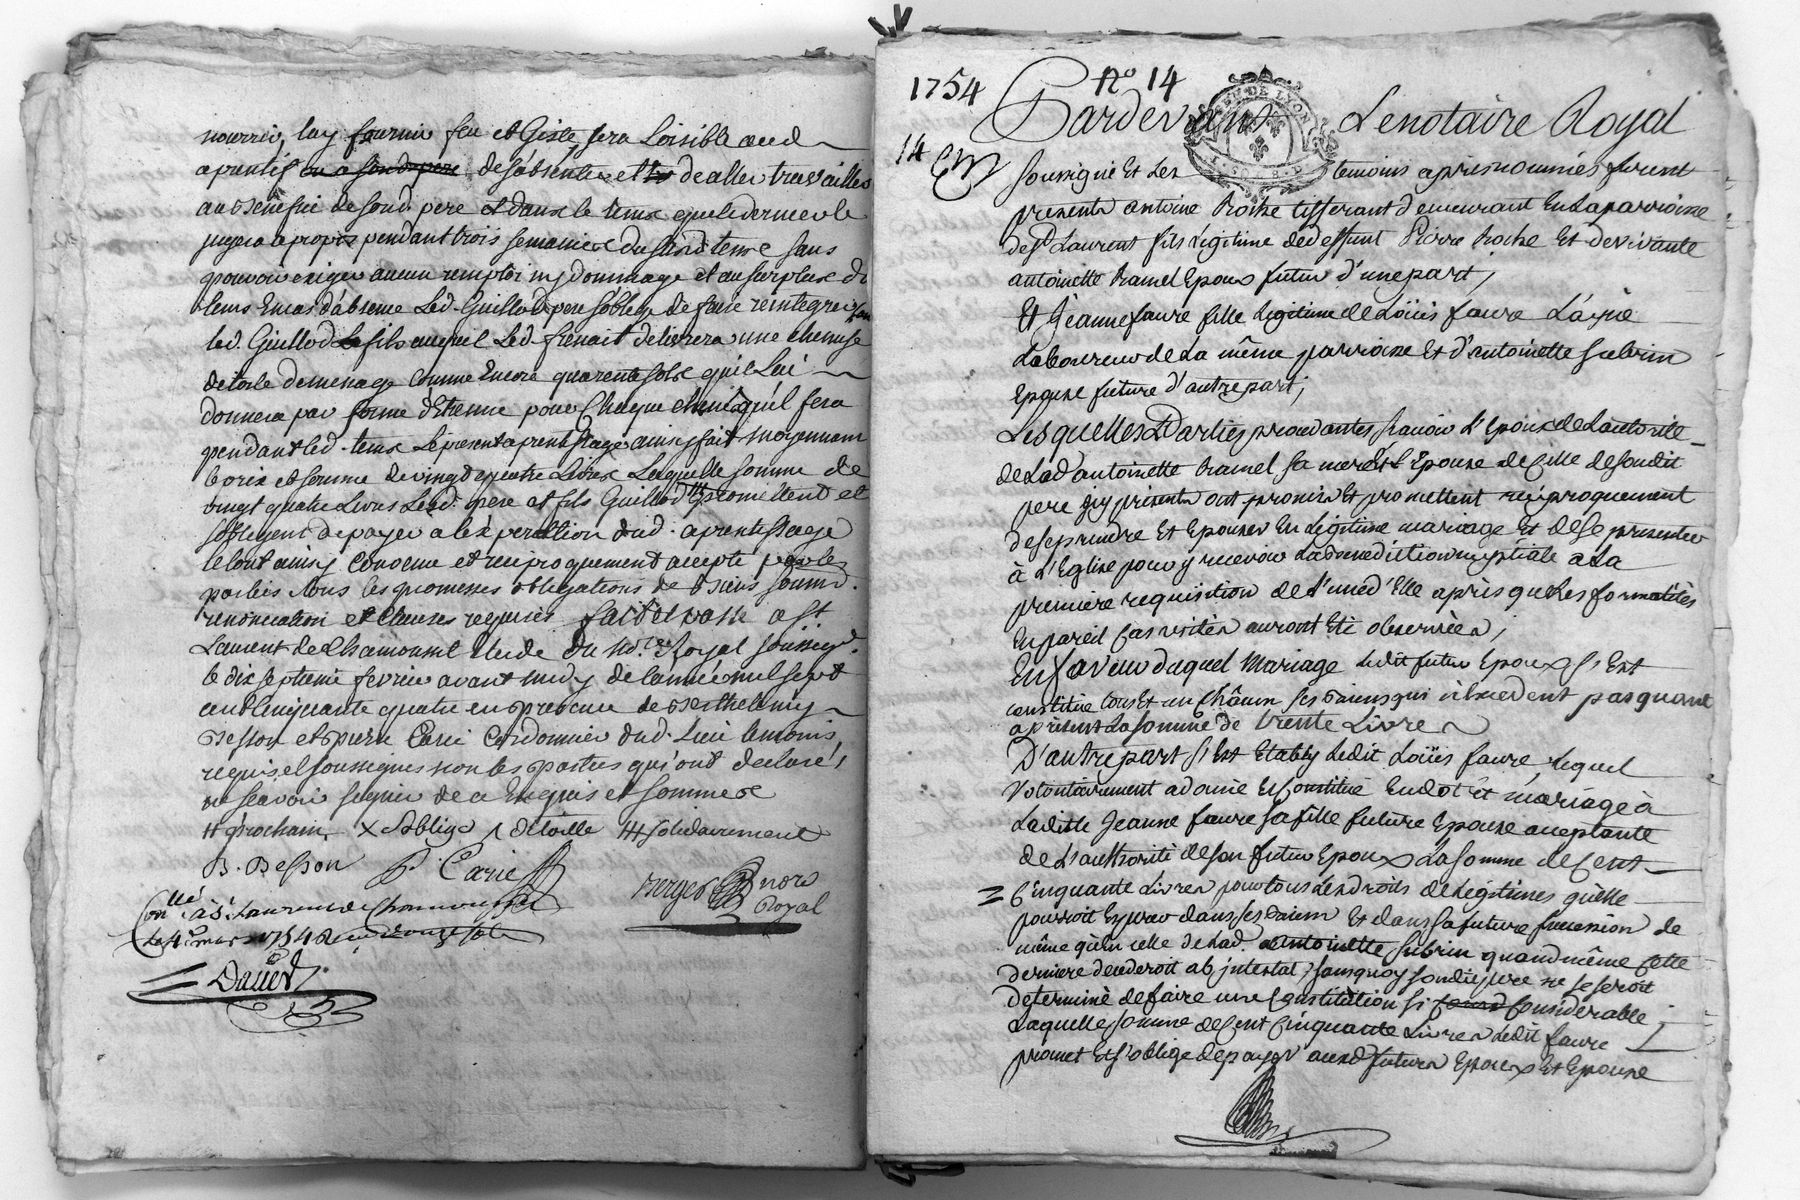 nourrir, luy fournir feu et Giste, sera Loisible aud
aprentif ou a sond. pere de sabsenter et de aller travailler
au Benefice de sond. pere et dans le tems que le dernier le
jugera apropos pendant trois semaines dususd. tems sans
pouvoir exiger aucun remploi ny dommage et au surplus du
tems En cas d'absence Led. Guillod pere s'oblige de faire reintegrer
led. Guillod Le fils auquel Led. frenait delivrera une chemise
de toile de menage Comme Encore quarente sols qu'il Lui
donnera par forme d'Etrenne pour Chaque qu'il fera
pendant led. tems Le present aprentissage ainsy fait moyennant
le prix et somme de vingt quatre Livres Laquelle somme de
vingt quatre Livres Lesd. pere et fils Guillod promettent et
s'obligent de payer a lexpiration dud. aprentissage
le tout ainsy Convenu et reciproquement accepté par les
parties sous les promesses obligations de Biens soumn.
renonciation et Clauses requises fait et passé a St
Laurent de Chamousset Etude du No.re Royal soussigné
le dix septieme fevrier avant midy de lannée mil sept
cent Cinquante quatre en presence de Berthelemy
Besson et pierre Carié Cordonnier dud. Lieu temoins
requis et soussignés non les parties qui ont declaré
ne scavoir signer de ce Enquis et sommés
# prochain, X s'oblige de toille solidairement
B. Besson P. Carié
Berger nore
Royal
Conllé à St Laurent de Chamousset
Le 4e mars 1754 Reçu douze sols
David
1754 No 14
14
Pardevant Le notaire Royal
GEN DE LYON
soussigné Et Les temoins après nommés furent
presents antoine Roche tisserant demeurant En La parroisse
de St Laurent fils Legitime de deffunt Pierre Roche Et de vivante
antoinette Ramel Epoux futur d'une part;
Et Jeanne faure fille Legitime de Loüis faure L'ainé
Laboureur de La même parroisse Et d'antoinette Subrin
Epouse future d'autre part;
Lesquelles Parties procedantes scavoir L'Epoux de L'autorité
de Lad antoinette Ramel sa mere Et L'Epouse de Celle de sondit
pere icy presents ont promis Et promettent reciproquement
de se prendre Et Epouser En Legitime mariage Et de se presenter
à L'Eglise pour y recevoir La Benediction nuptiale a La
premiere requisition de L'un d'Elle après que Les formalités
En pareil Cas usitées auront Eté observées;
En faveur duquel Mariage Ledit futur Epoux s'Est
constitué tous Et un chacun ses Biens qui n'Excedent pas quant
à present La somme de trente Livres
D'autre part s'Est Etably Ledit Loüis faure Lequel
Volontairement a donné Et Constitué En dot et mariage à
Laditte Jeanne faure sa fille future Epouse acceptante
de L'authorité de son futur Epoux La somme de Cent
Cinquante Livres pour tous Les droits de Legitimes qu'elle
pourroit Esperer dans ses Biens Et dans sa future succession de
même qu'En celle de Lad. antoinette Subrin quand même Cette
derniere decederoit ab intestat, sans quoy sondit pere ne se seroit
determiné de faire une Constitution si Considerable,
Laquelle somme de Cent Cinquante Livres Ledit faure
promet Et s'oblige de payer auxd futurs Epoux Et Epouse